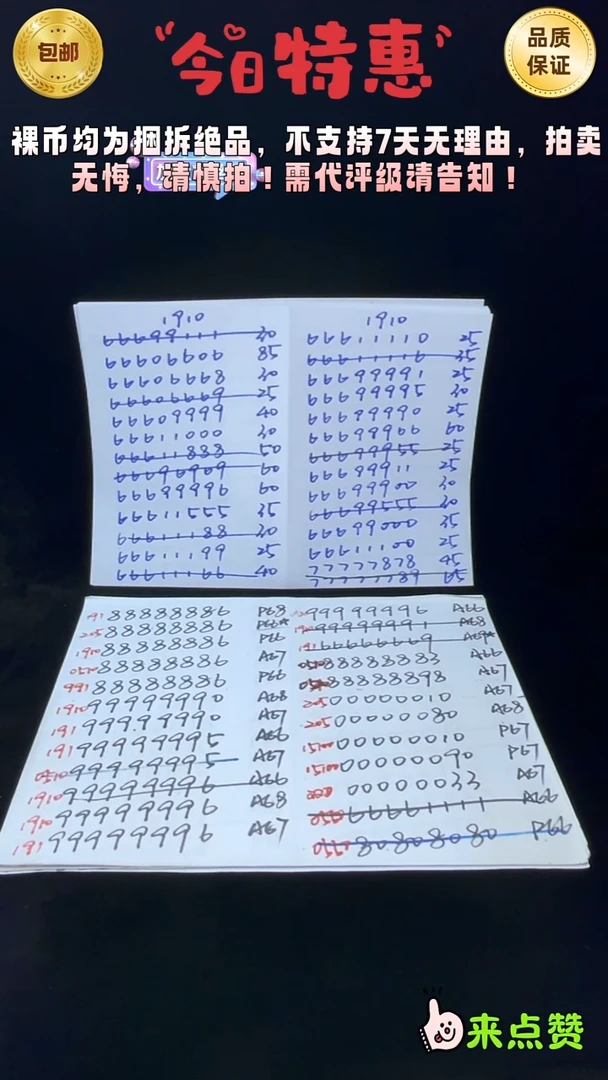 包邮
今日特惠
品质
保证
裸币均为捆拆绝品，不支持7天无理由，拍卖
无悔，请慎拍！需代评级请告知！
1910
66699111 30
66606606 85
66606668 30
66606669 25
66609999 40
66611000 30
66611888 50
66696969 60
66699996 60
66611555 35
66611188 30
66611199 25
66611166 40
1910
66611110 25
66611116 35
66699991 25
66699995 30
66699990 25
66699966 60
66699955 25
66699911 25
66699900 30
66699555 30
66699000 35
66611100 25
77777878 45
77777789 65
191 88888886 P68
205 88888886 P66★
1910 88888886 P66
0510 88888886 A67
991 88888886 P66
1910 99999990 A68
191 99999990 A67
191 99999995 A66
0510 99999995 A67
1910 99999996 A66
1910 99999996 A68
191 99999996 A67
99999996 A66
1910 99999991 A68
191 66666669 A69★
0510 88888883 A66
88888898 A67
205 00000010 A67
205 00000080 A68
1510 00000010 P67
1510 00000090 P67
00000033 A67
0550 66661111 A66
0550 80808080 P66
来点赞